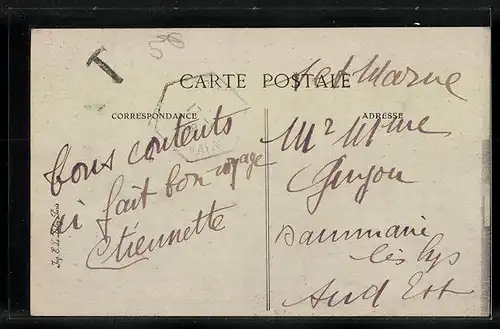 T
CARTE POSTALE
Set Marne
CORRESPONDANCE
ADRESSE
bons contents
ai fait bon voyage
Etiennette
Mr Mme
Guyou
Dammarie
les lys
Sud Est